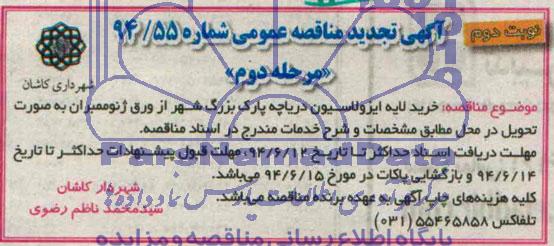 نوبت دوم
آگهی تجدید مناقصه عمومی شماره ۹۴/۵۵
«مرحله دوم»
شهرداری کاشان
موضوع مناقصه: خرید لایه ایزولاسیون دریاچه پارک بزرگ شهر از ورق ژئوممبران به صورت
تحویل در محل مطابق مشخصات و شرح خدمات مندرج در اسناد مناقصه.
مهلت دریافت اسناد حداکثر تا تاریخ ۹۴/۶/۱۲، مهلت قبول پیشنهادات حداکثر تا تاریخ
۹۴/۶/۱۴ و بازگشایی پاکات در مورخ ۹۴/۶/۱۵ می‌باشد.
کلیه هزینه‌های چاپ آگهی به عهده برنده مناقصه می‌باشد.
تلفاکس ۵۵۴۶۵۸۵۸ (۰۳۱)
شهردار کاشان
سیدمحمد ناظم رضوی
ParsNamadData
پایگاه اطلاع رسانی مناقصه و مزایده